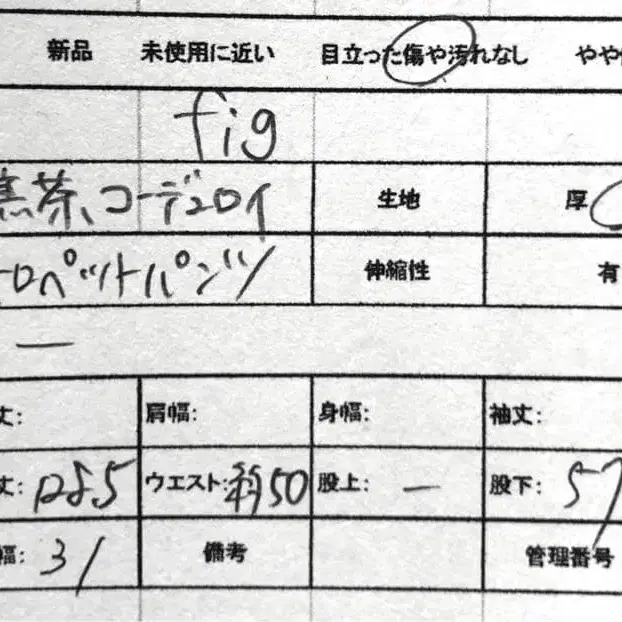 新品 未使用に近い 目立った傷や汚れなし やや
fig
黒茶、コーデュロイ 生地 厚
ロペットパンツ 伸縮性 有
ー
丈: 肩幅: 身幅: 袖丈:
丈: ウエスト: 50 股上: ー 股下: 57
幅: 31 備考 管理番号